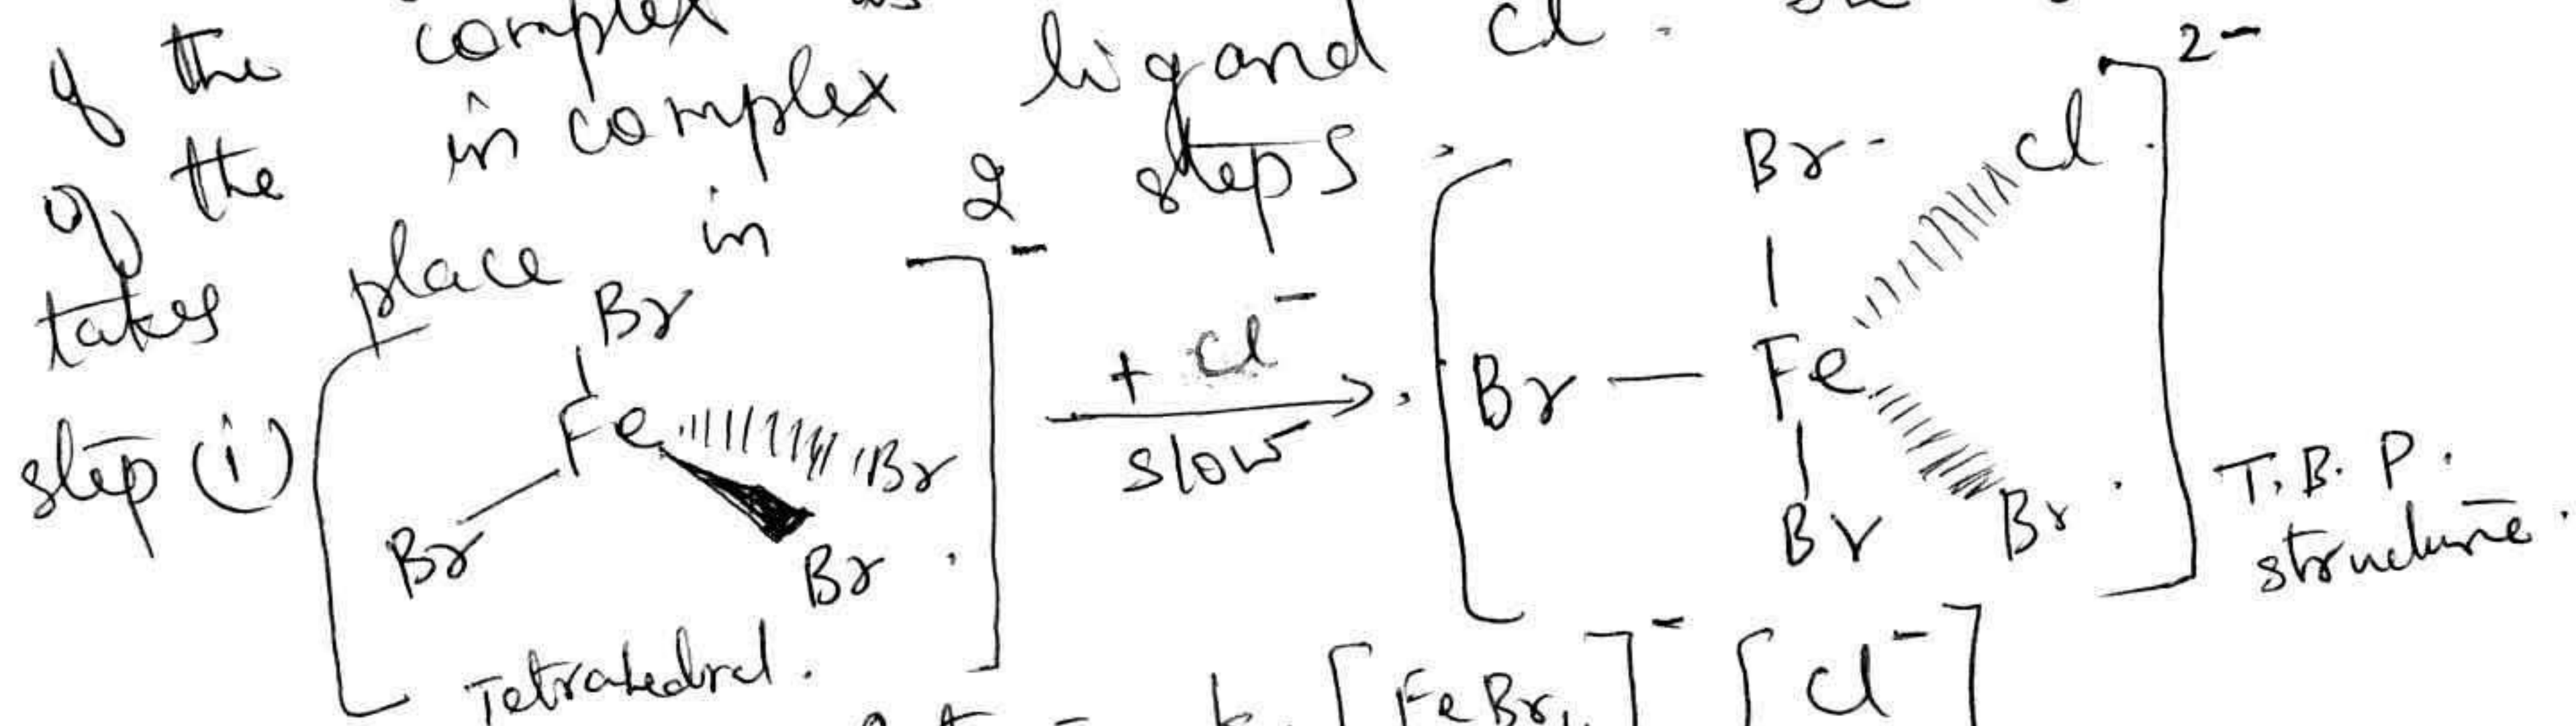 of the complex
of the in complex ligand Cl.
takes place in 2 steps
step (i) [Fe Br Br Br Br]⁻ + Cl⁻ slow → [Fe Br Br Br Br Cl]²⁻ T.B.P. structure.
Tetrahedral.
[FeBr₄]⁻ [Cl⁻]